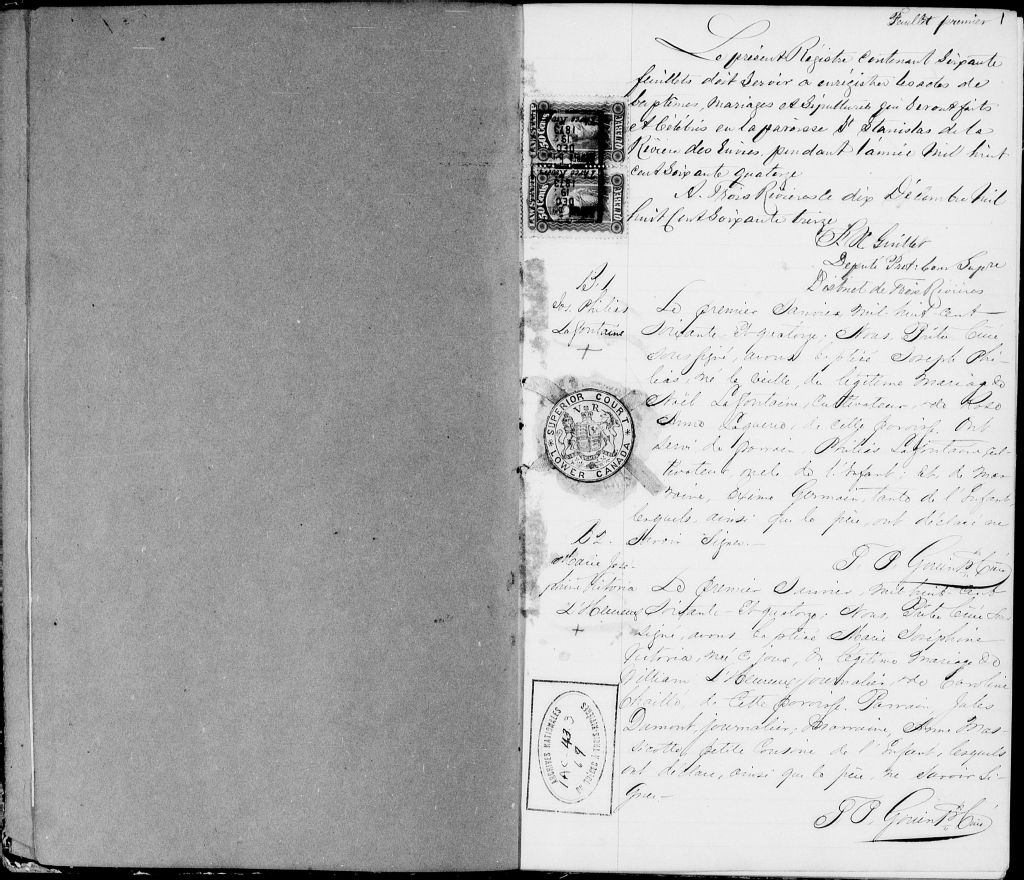 Feuillet premier 1
Le présent Régistre contenant Soixante
feuillets doit Servir a enrégistrer les actes de
baptêmes, Mariages et Sépultures qui Seront faits
et Célébrés en la paroisse St Stanislas de la
Rivière des Envies, pendant l'année Mil huit
cent Soixante quatorze
A Trois Rivières le dix Décembre Mil
huit Cent Soixante treize
Guillet
Député Prot. Cour Supre
District de Trois Rivières
LAW STAMP
50 Cents
QUEBEC
DEC
19
1873
LAW STAMP
50 Cents
QUEBEC
DEC
19
1873
B. 1
Jos. Philias
Lafontaine
+
Le premier Janvier, mil-huit-cent
Soixante-Et-quatorze, Nous, Prêtre Curé
Soussigné, avons baptisé Joseph Phi-
lias, né la veille, du légitime mariage de
Noël Lafontaine, Cultivateur, & de Rose
Anna, de cette paroisse. Ont
servi de parrain, Philias Lafontaine, cul-
tivateur, oncle de l'Enfant; et de mar-
raine, Germain, tante de l'Enfant,
lesquels, ainsi que le père, ont déclaré ne
Savoir Signer.—
Gouin Ptre Curé
SUPERIOR COURT
V R
LOWER CANADA
B 2.
Marie José-
phine Victoria
L'Heureux
+
Le premier Janvier, mil huit-Cent
Soixante-Et-quatorze, Nous, Prêtre Curé Sous
Signé, avons baptisé Marie Joséphine
Victoria, née ce jour, du légitime mariage de
William L'Heureux, journalier, & de Caroline
de cette paroisse. Parrain, Jules
Dumont, journalier; Marraine, Anna Mas-
sicotte, petite Cousine de l'Enfant, lesquels
ont déclaré, ainsi que le père, ne Savoir Si-
gner—
Gouin Ptre Curé
ARCHIVES NATIONALES
433
69
DU QUÉBEC À TROIS-RIVIÈRES